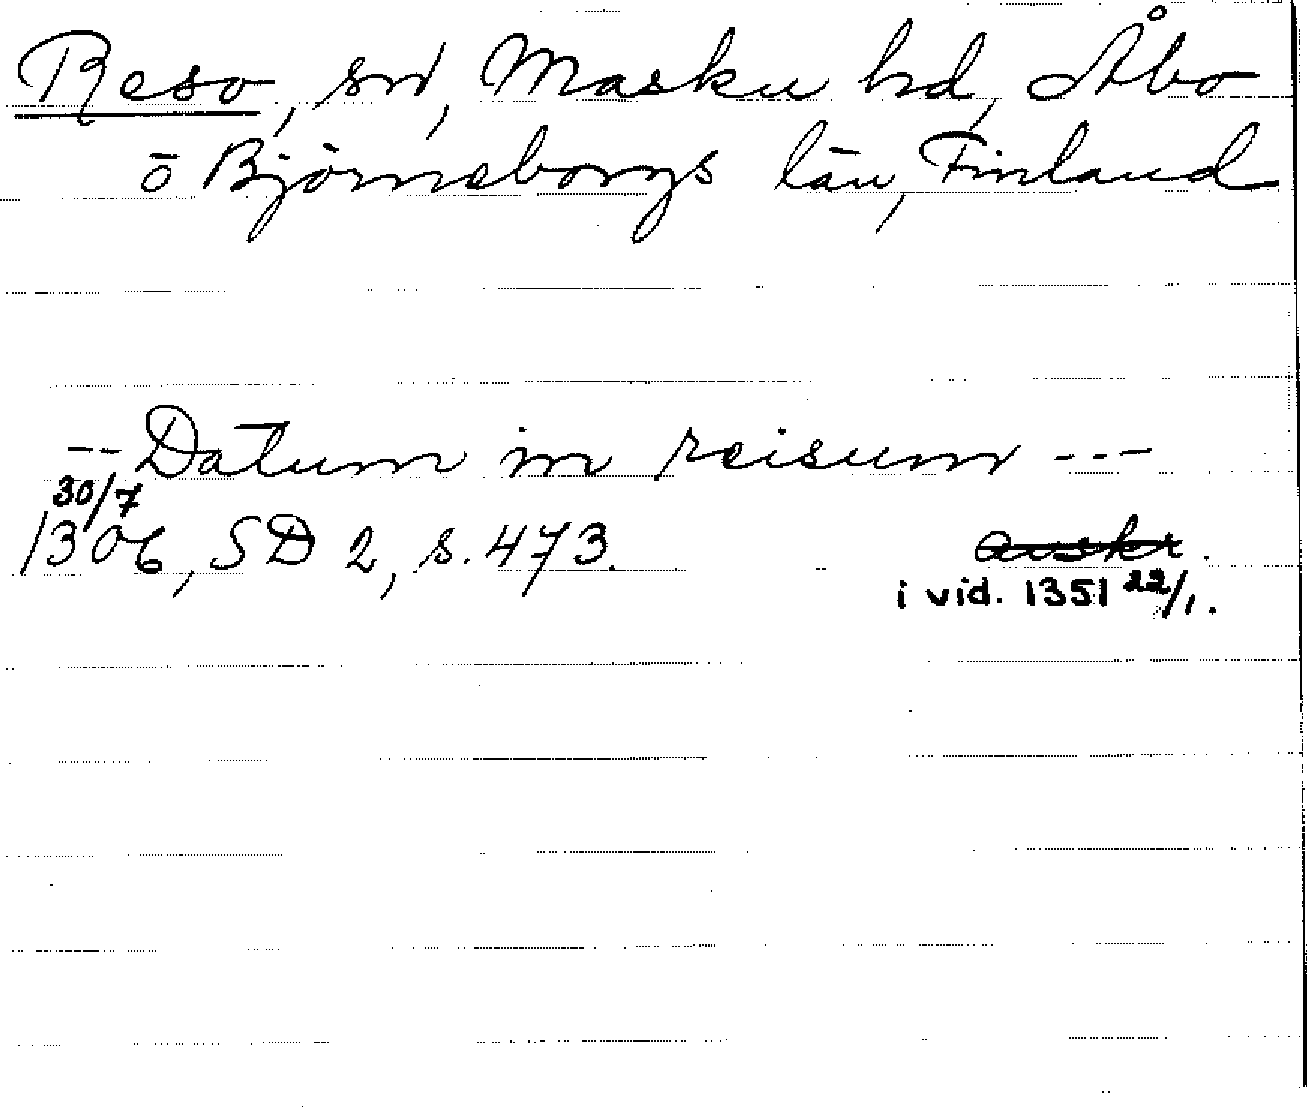 Reso, sn, Masku hd, Åbo
o Björneborgs län, Finland
-- Datum in reisum ---
30/7
1306, SD 2, s. 473.
avskr.
i vid. 1351 22/1.